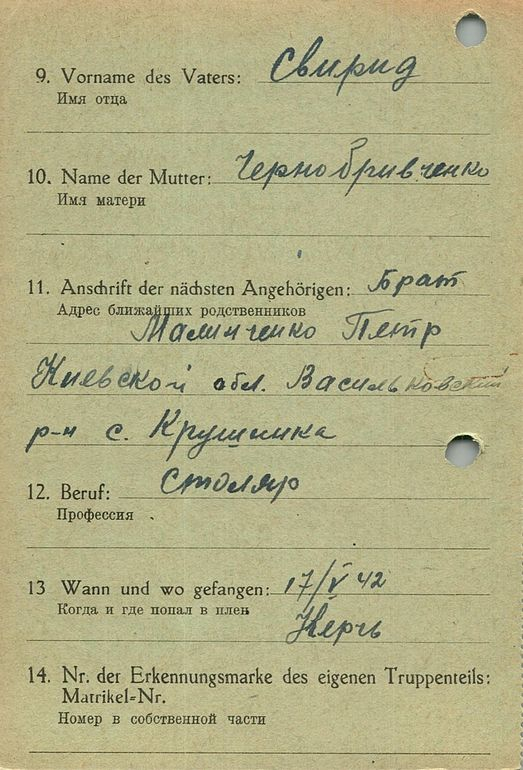 9. Vorname des Vaters: Свирид
Имя отца
10. Name der Mutter: Чернобривченко
Имя матери
11. Anschrift der nächsten Angehörigen: Брат
Адрес ближайших родственников
Малинченко Петр
Киевской обл. Васильковский
р-н с. Крушинка
12. Beruf: столяр
Профессия
13 Wann und wo gefangen: 17/V 42
Когда и где попал в плен
Керчь
14. Nr. der Erkennungsmarke des eigenen Truppenteils:
Matrikel-Nr.
Номер в собственной части